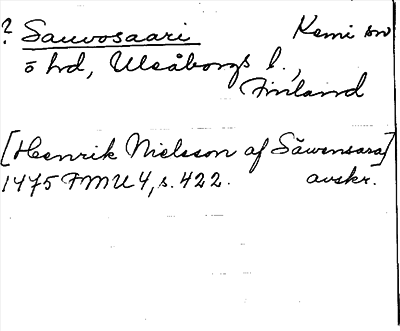 ? Sauvosaari Kemi sn
ö hd, Uleåborgs l.,
Finland
[Henrik Nielsson af Säwensara]
1475 FMU 4, s. 422. avskr.